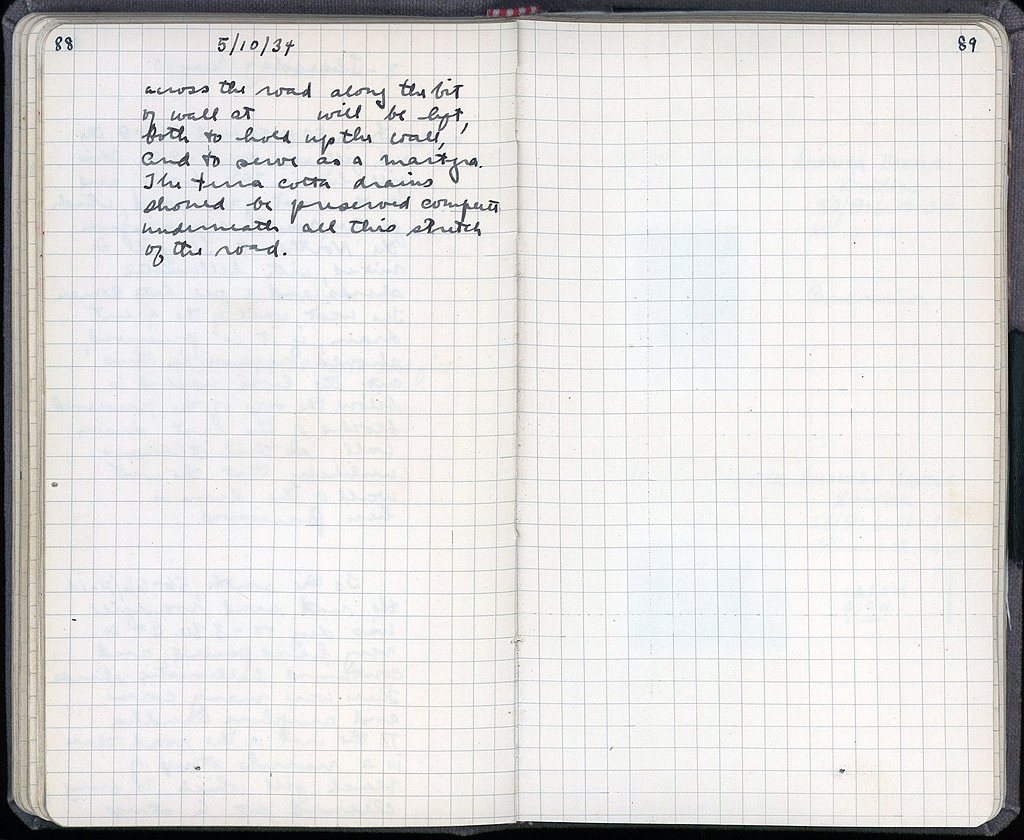 88
5/10/34
89
across the road along the bit
of wall at will be left,
both to hold up the wall,
and to serve as a martyra.
The terra cotta drains
should be preserved complete
underneath all this stretch
of the road.